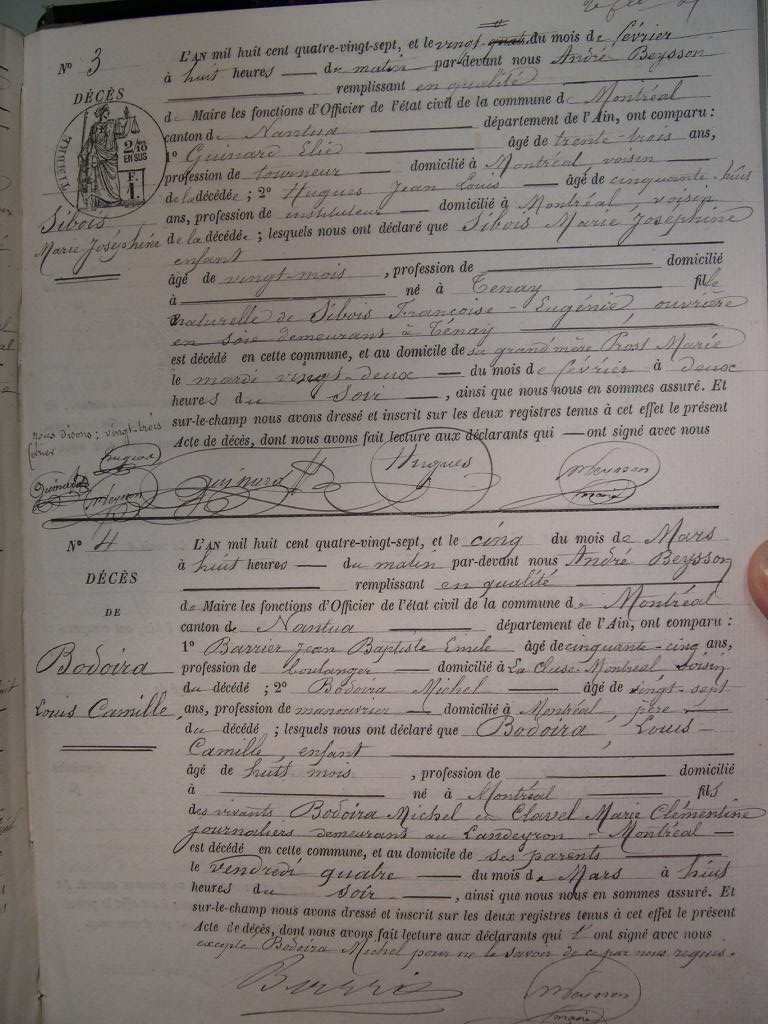 N° 3
DÉCÈS
TIMBRE
2/10
EN SUS
F.
1
Sibois
Marie Joséphine
L'AN mil huit cent quatre-vingt-sept, et le vingt quatre du mois de février
à huit heures du matin par-devant nous André Beysson
remplissant en qualité
de Maire les fonctions d'Officier de l'état civil de la commune de Montréal
canton de Nantua département de l'Ain, ont comparu :
1° Guinard Elie âgé de trente-trois ans,
profession de tourneur domicilié à Montréal, voisin
de la décédée ; 2° Hugues Jean Louis âgé de cinquante-huit
ans, profession de instituteur domicilié à Montréal, voisin
de la décédée ; lesquels nous ont déclaré que Sibois Marie Joséphine
enfant
âgé de vingt-mois , profession de domicilié
à né à Tenay fille
naturelle de Sibois Françoise-Eugénie, ouvrière
en soie demeurant à Ténay
est décédé en cette commune, et au domicile de sa grand'mère Prost Marie
le mardi vingt-deux du mois de février à deux
heures du soir , ainsi que nous nous en sommes assuré. Et
sur-le-champ nous avons dressé et inscrit sur les deux registres tenus à cet effet le présent
Acte de décès, dont nous avons fait lecture aux déclarants qui ont signé avec nous
nous disons ; vingt-trois
février
Hugues
Guinard
Beysson
Guinard
Hugues
Beysson
maire
N° 4
DÉCÈS
DE
Bodoira
Louis Camille
L'AN mil huit cent quatre-vingt-sept, et le cinq du mois de Mars
à huit heures du matin par-devant nous André Beysson
remplissant en qualité
de Maire les fonctions d'Officier de l'état civil de la commune de Montréal
canton de Nantua département de l'Ain, ont comparu :
1° Barrier Jean Baptiste Emile âgé de cinquante-cinq ans,
profession de boulanger domicilié à La Cluse-Montréal voisin
du décédé ; 2° Bodoira Michel âgé de vingt-sept
ans, profession de manouvrier domicilié à Montréal, père
du décédé ; lesquels nous ont déclaré que Bodoira Louis-
Camille, enfant
âgé de huit mois , profession de domicilié
à né à Montréal fils
des vivants Bodoira Michel et Clavel Marie Clémentine
journaliers demeurant au Landeyron-Montréal
est décédé en cette commune, et au domicile de ses parents
le vendredi quatre du mois de Mars à huit
heures du soir , ainsi que nous nous en sommes assuré. Et
sur-le-champ nous avons dressé et inscrit sur les deux registres tenus à cet effet le présent
Acte de décès, dont nous avons fait lecture aux déclarants qui l'ont signé avec nous
excepté Bodoira Michel pour ne le savoir de ce par nous requis.
Barrier
Beysson
maire